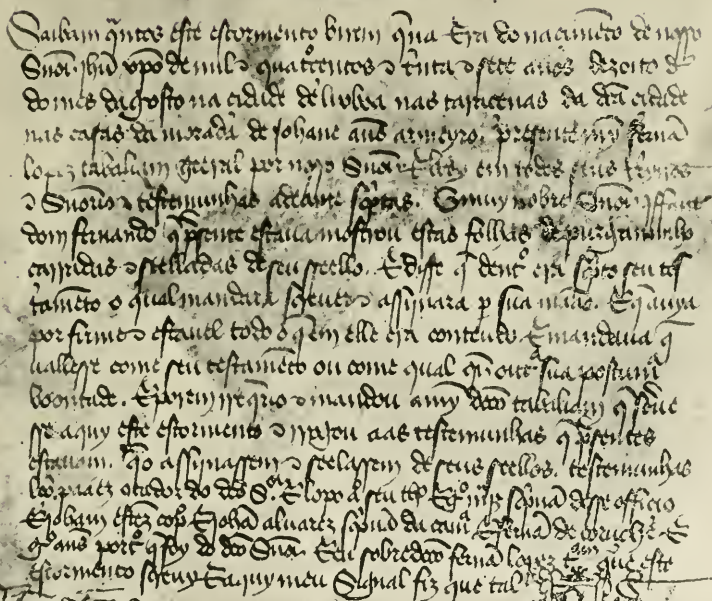 Saibam qntos este estormento birem q na Era do nacimēto de nosso
Snor jhu xpo de mil e quatrocentos e trinta e sete anos dezoito ds
do mes dagosto na cidade de lixboa nas taracenas da dcā cidade
nas casas da morada de Johane ans armeyro. presente mỹ fernā
lopez tabaliam geeral por nosso Snor ElRey em todos seus Regnos
e Snorios e testemunhas adeante scptas. O muy nobre Snor Iffante
dom fernando q psente estava mostrou estas folhas de purgaminho
carradas e seelladas de seu seello. E disse q dentº era scpto seu tes
tamēto o qual mandara sqever e assijnara p sua mãao. E q avya
por firme e estavel todo o q em elle era contendo. E mandava q
vallesse come seu testamēto ou come qual qr outª sua postumª
voontade. E porem reqrio e mandou a mỹ dcō tabaliam q screve
sse aquy este estormento e rogou aas testemunhas q psentes
estavom. q o assijnassem e seelassem de seus seellos. testemunhas
paaez contador do dcō Sor. E lopo seu E scpvā desse officio
E Joham estēz E Johā alvarez scpvā da E fernā de coruche. E
gº ans portº q foy do dcō Snor. E eu sobredcō fernā lopez q este
estormento sqevy E aquy meu Signal fiz que tal